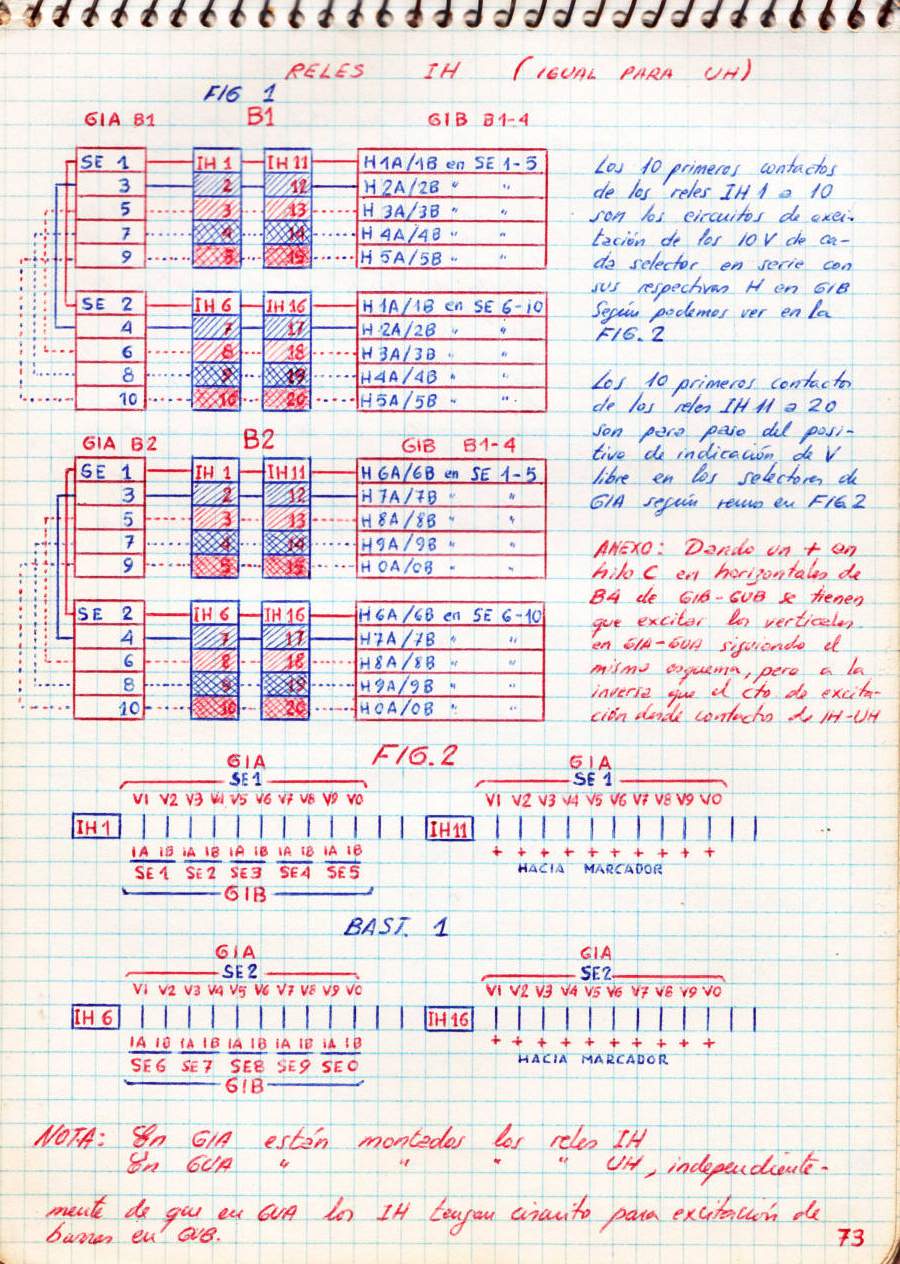 RELES IH (IGUAL PARA UH)
FIG 1
GIA B1 B1 GIB B1-4
SE 1 IH 1 IH 11 H1A/1B en SE 1-5
3 2 12 H2A/2B " "
5 3 13 H3A/3B " "
7 4 14 H4A/4B " "
9 5 15 H5A/5B " "
SE 2 IH 6 IH 16 H1A/1B en SE 6-10
4 7 17 H2A/2B " "
6 8 18 H3A/3B " "
8 9 19 H4A/4B " "
10 10 20 H5A/5B " "
Los 10 primeros contactos
de los reles IH 1 a 10
son los circuitos de exci-
tación de los 10 V de ca-
da selector en serie con
sus respectivas H en GIB
Según podemos ver en la
FIG. 2
Los 10 primeros contactos
de los reles IH 11 a 20
son para paso del posi-
tivo de indicación de V
libre en los selectores de
GIA según vemos en FIG 2
GIA B2 B2 GIB B1-4
SE 1 IH 1 IH11 H6A/6B en SE 1-5
3 2 12 H7A/7B " "
5 3 13 H8A/8B " "
7 4 14 H9A/9B " "
9 5 15 H0A/0B " "
SE 2 IH 6 IH 16 H6A/6B en SE 6-10
4 7 17 H7A/7B " "
6 8 18 H8A/8B " "
8 9 19 H9A/9B " "
10 10 20 H0A/0B " "
ANEXO: Dando un + en
hilo C en horizontales de
B4 de GIB-GUB se tienen
que excitar los verticales
en GIA-GUA siguiendo el
mismo esquema, pero a la
inversa que el cto de excita-
ción desde contactos de IH-UH
FIG. 2
GIA GIA
SE1 SE 1
V1 V2 V3 V4 V5 V6 V7 V8 V9 V0 V1 V2 V3 V4 V5 V6 V7 V8 V9 V0
IH 1 IH11
1A 1B 1A 1B 1A 1B 1A 1B 1A 1B + + + + + + + + + +
SE 1 SE2 SE3 SE4 SE5 HACIA MARCADOR
GIB
BAST. 1
GIA GIA
SE2 SE2
V1 V2 V3 V4 V5 V6 V7 V8 V9 V0 V1 V2 V3 V4 V5 V6 V7 V8 V9 V0
IH 6 IH 16
1A 1B 1A 1B 1A 1B 1A 1B 1A 1B + + + + + + + + + +
SE6 SE7 SE8 SE9 SE0 HACIA MARCADOR
GIB
NOTA: En GIA están montados los reles IH
En GUA " " " " UH, independiente-
mente de que en GUA los IH tengan circuito para excitación de
barras en GUB.
73